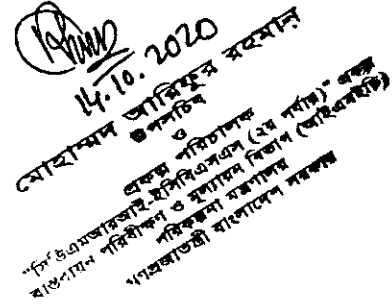 14.10.2020
মোহাম্মদ আরিফুর রহমান
উপসচিব
ও
প্রকল্প পরিচালক
"সিডিএমআরআই-ইসিবিএসএস (২য় পর্যায়)" প্রকল্প
বাস্তবায়ন পরিবীক্ষণ ও মূল্যায়ন বিভাগ (আইএমইডি)
পরিকল্পনা মন্ত্রণালয়
গণপ্রজাতন্ত্রী বাংলাদেশ সরকার